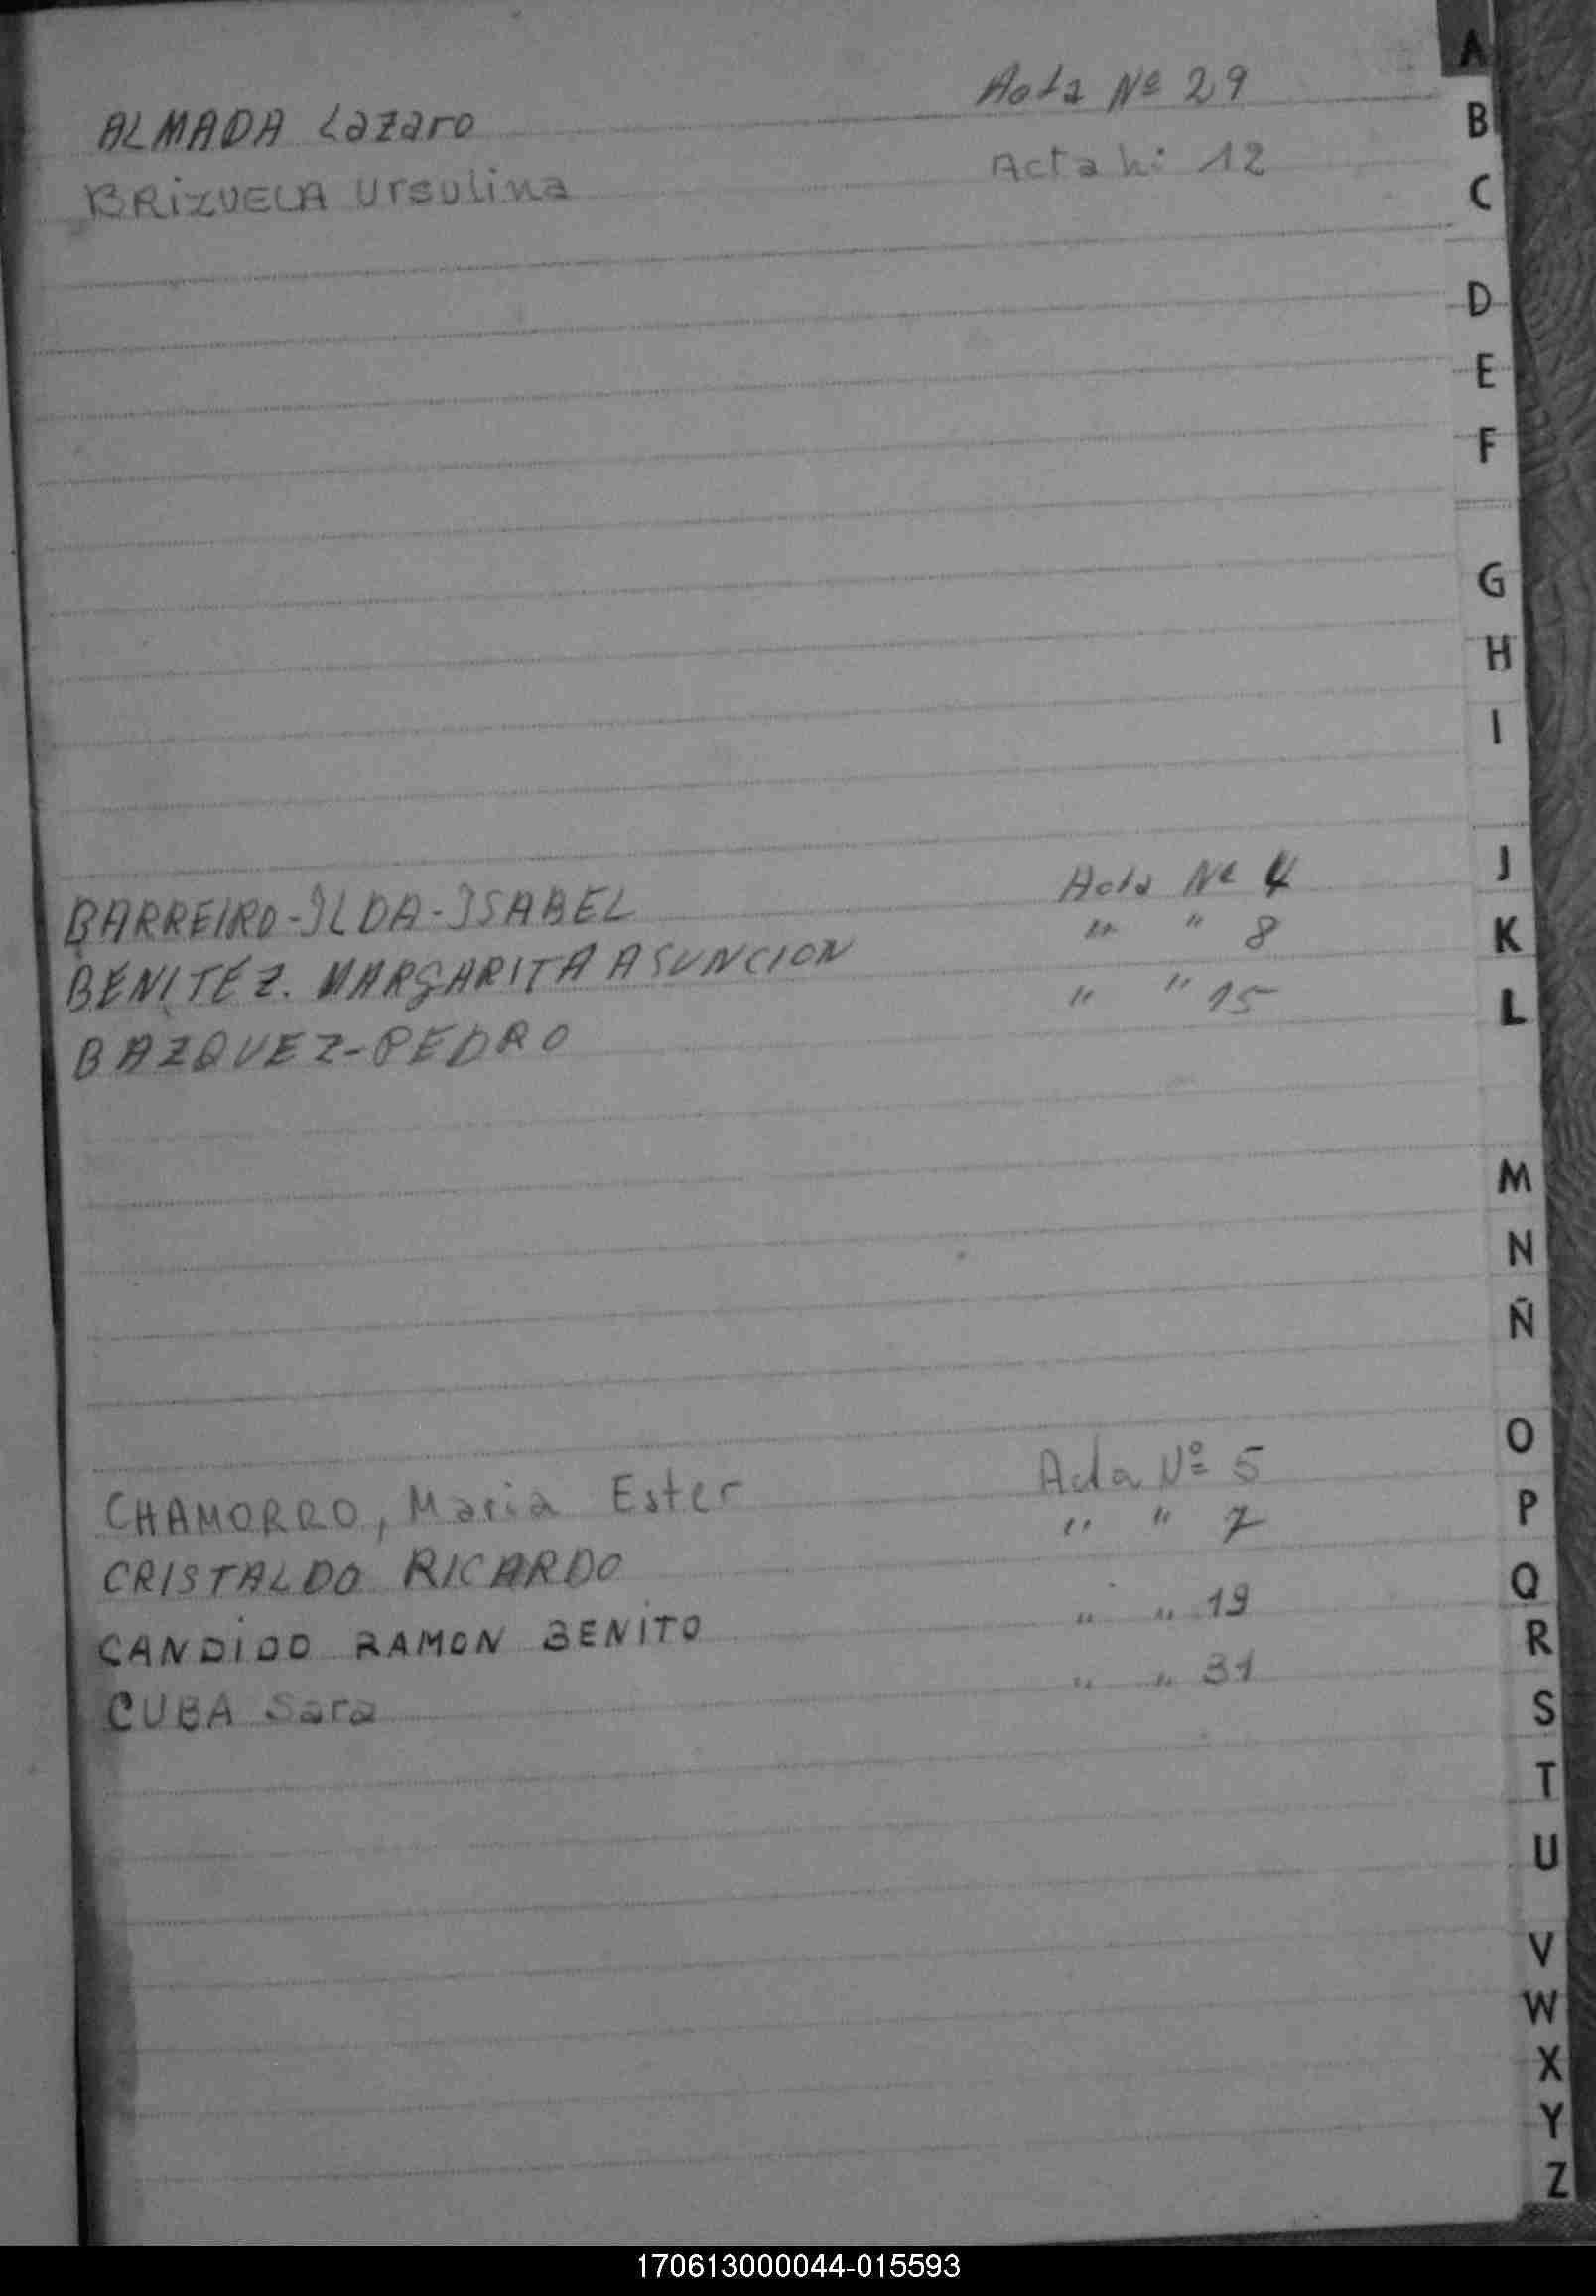 ALMADA Lazaro Acta Nº 29
BRiZUELA Ursulina Acta Nº 12
BARREIRO-ILDA-ISABEL Acta Nº 4
BENITEZ. MARGARITA ASUNCION " " 8
BAZQUEZ-PEDRO " " 15
CHAMORRO, Maria Ester Acta Nº 5
CRISTALDO RICARDO " " 7
CANDiDO RAMON BENiTO " " 19
CUBA Sara " " 31
A
B
C
D
E
F
G
H
I
J
K
L
M
N
Ñ
O
P
Q
R
S
T
U
V
W
X
Y
Z
170613000044-015593